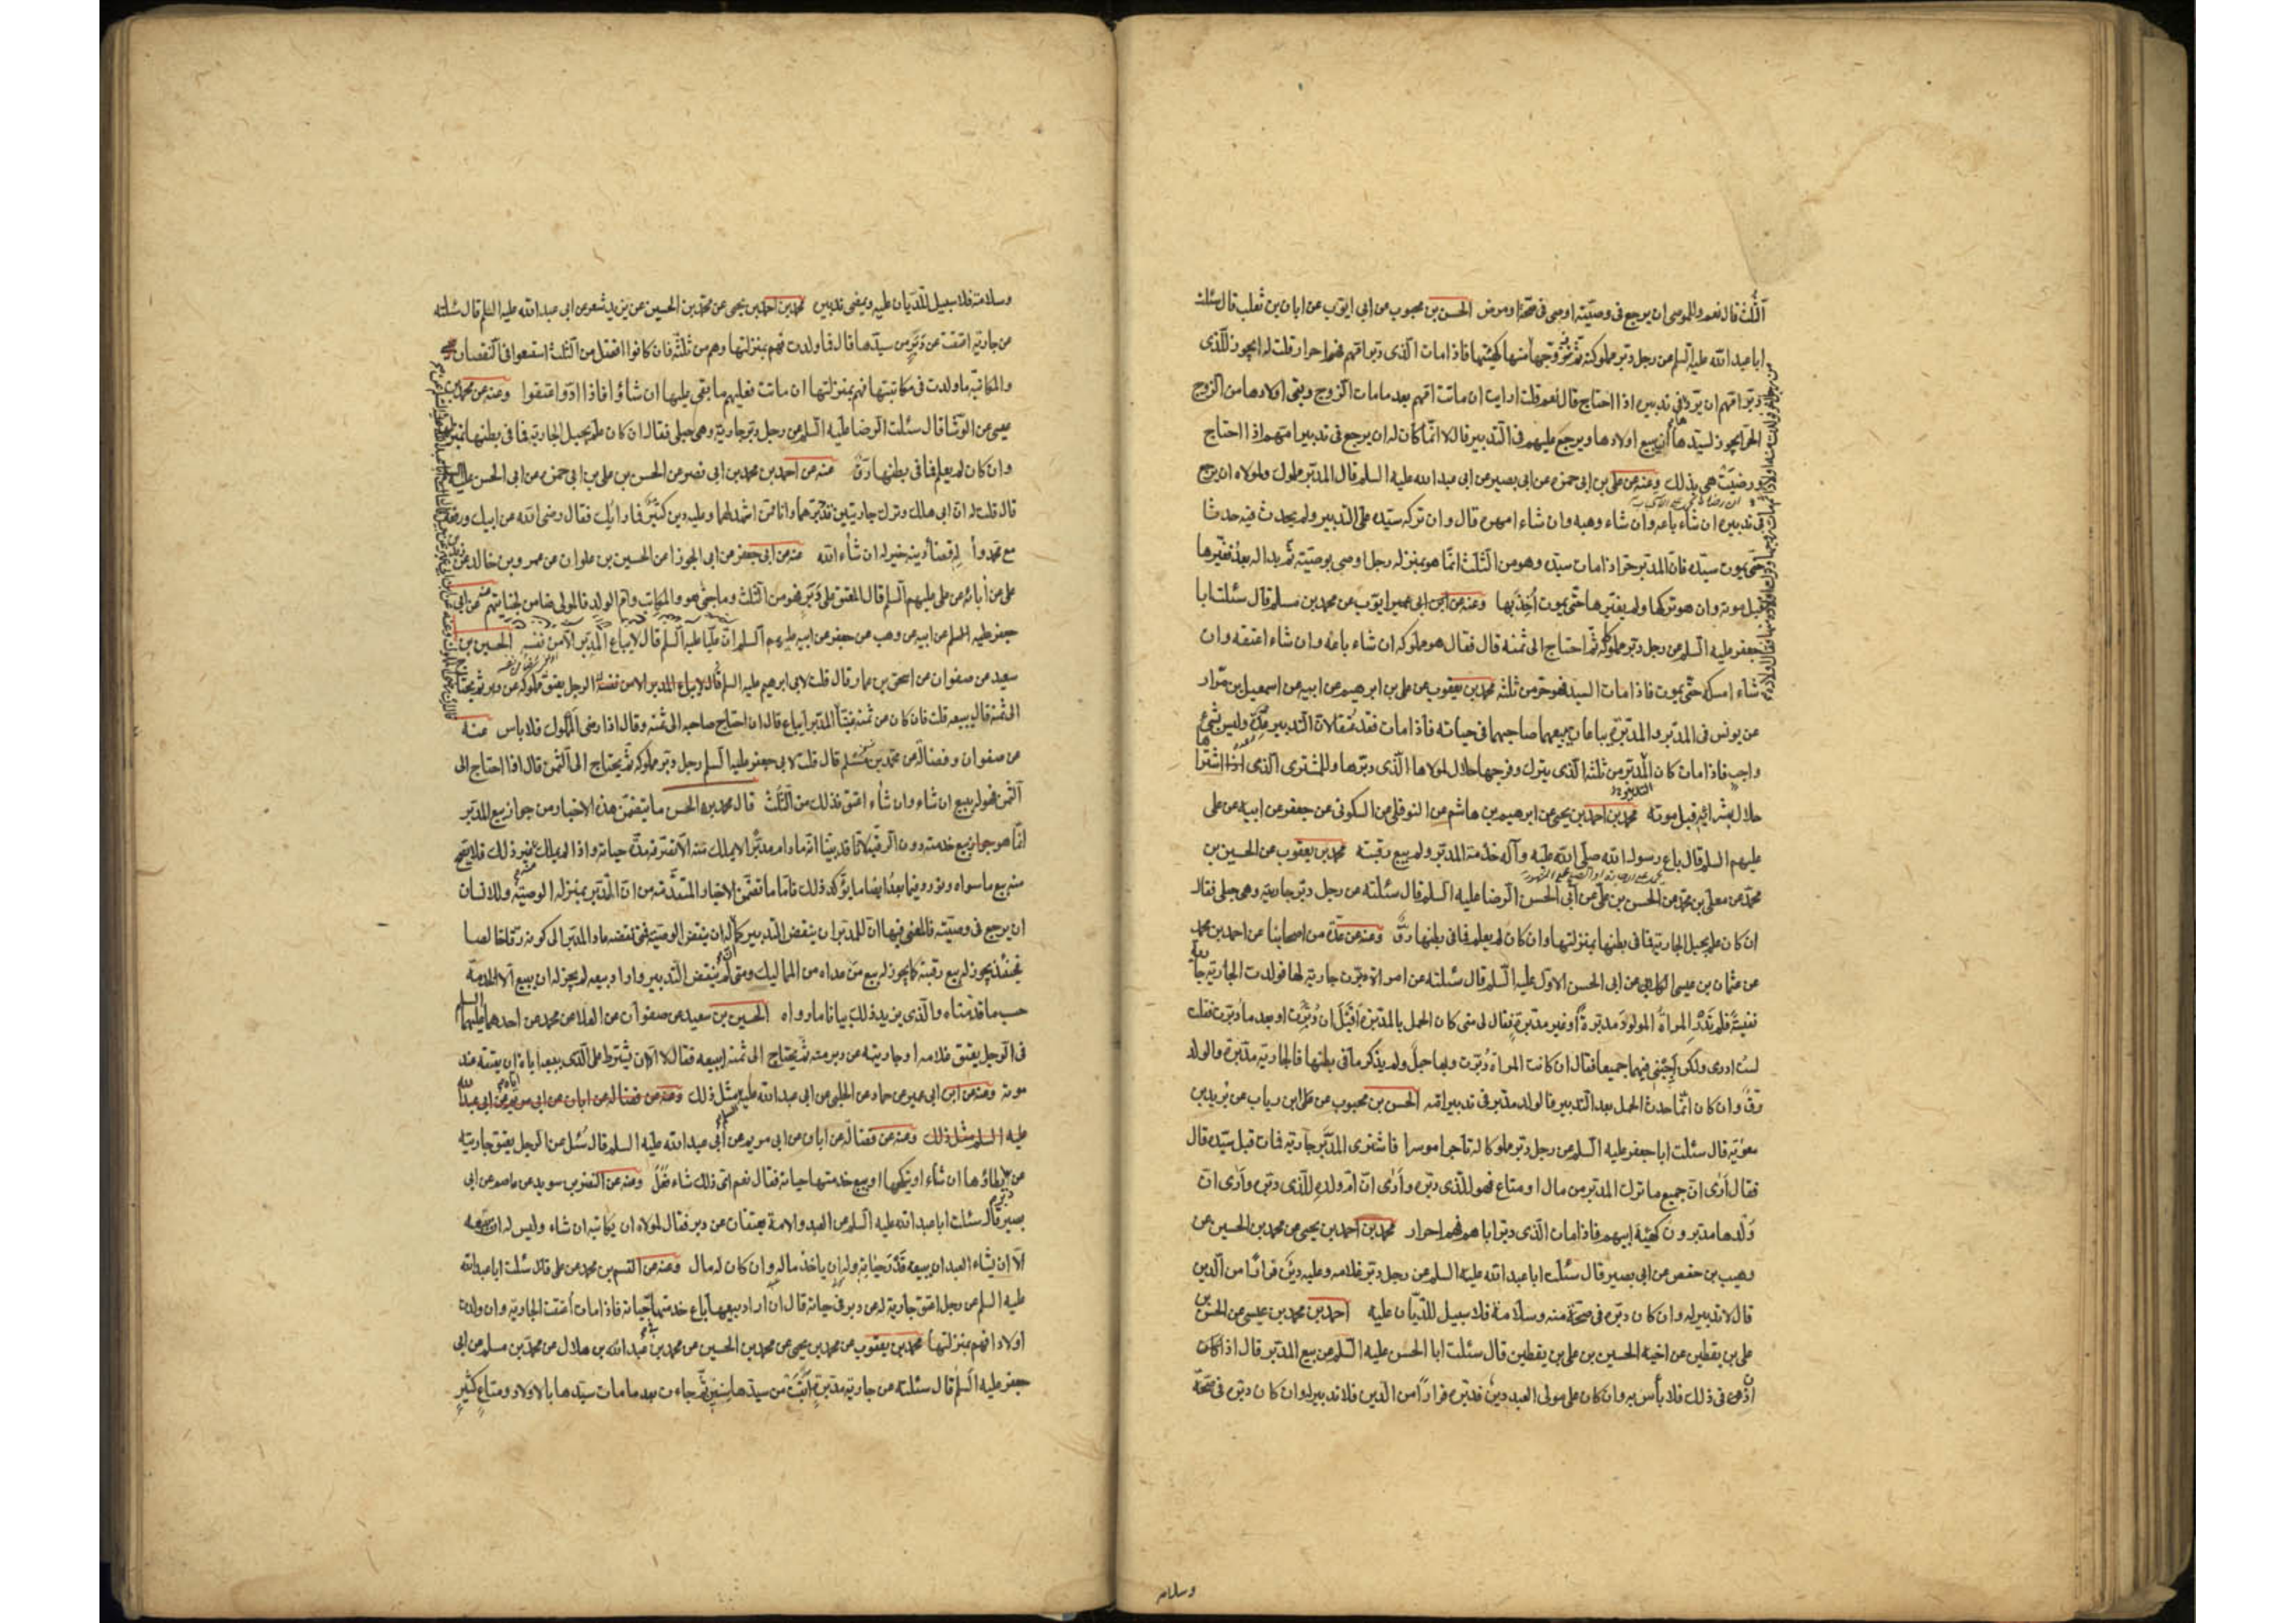 الثلث قال نعم والموصى ان يرجع فى وصيّته اوصى فى صحّة او مرض الحسن بن محبوب عن ابى ايّوب عن ابان بن تغلب قال سئلت
ابا عبد الله عليه السلم عن رجل دبّر مملوكته ثمّ زوّجها من رجل اخر فولدت منه اولادا ثم مات زوجها وترك اولاده منها فقال اولاده منها كهيئتها فاذا مات الّذى دبّر امّهم فهم احرار قلت له ايجوز للّذى
دبّر امّهم ان يردّ فى تدبيره اذا احتاج قال نعم قلت ارايت ان ماتت امّهم بعد ما مات الزوج وبقى اولادها من الزوج
الحرّ ايجوز لسيّدها ان يبيع اولادها ويرجع عليهم فى التدبير قال لا انّما كان له ان يرجع فى تدبير امّهم اذا احتاج
ورضيت هى بذلك وعنه عن على بن ابى حمزه عن ابى بصير عن ابى عبد الله عليه السلم قال المدبّر مملوك ولمولاه ان يرجع
فى تدبيره ان شاء باعه وان شاء وهبه وان شاء امهره قال وان تركه سيّده على التدبير ولم يحدث فيه حدثا
حتّى يموت سيّده فانّ المدبّر حرّ اذا مات سيّده وهو من الثلث انّما هو بمنزله رجل اوصى بوصيّة ثم بدا له بعد فغيّرها
قبل موته وان هو تركها ولم يغيّرها حتّى يموت أُخِذ بها وعنه عن ابن ابى عمير ايّوب عن محمد بن مسلم قال سئلت ابا
جعفر عليه السلم عن رجل دبّر مملوكه ثمّ احتاج الى ثمنه قال فقال هو مملوكه ان شاء باعه وان شاء اعتقه وان
شاء امسكه حتّى يموت فاذا مات السيد فهو حرّ من ثلثه محمد بن يعقوب عن على بن ابرهيم عن ابيه عن اسمعيل بن مرّار
عن يونس فى المدبّر والمدبّرة يباعان يبيعهما صاحبهما فى حياته فاذا مات فقد عتقا لانّ التدبير عدة وليس بشئ
واجب فاذا مات كان المدبّر من ثلثه الّذى يترك وفرجها حلال لمولاها الّذى دبّرها وللمشترى الذى اشتراها
حلال بشرائه قبل موته محمد بن احمد بن يحيى عن ابرهيم بن هاشم عن النوفلى عن السكونى عن جعفر عن ابيه عن على
عليهم السلم قال باع رسول الله صلّى الله عليه وآله خدمة المدبّر ولم يبع رقبته محمد بن يعقوب عن الحسين بن
محمّد عن معلى بن محمّد عن الحسن بن على عن أبى الحسن الرضا عليه السلم قال سئلته عن رجل دبّر جاريته وهى حبلى فقال
ان كان علم بحبل الجارية فما فى بطنها بمنزلتها وان كان لم يعلم فما فى بطنها رقٌّ وعنه عن عدّة من اصحابنا عن احمد بن محمد
عن عثمان بن عيسى الكلابى عن ابى الحسن الاول عليه السّلم قال سئلته عن امراة دبّرت جارية لها فولدت الجارية جارية
نفيسة فلم تَدْرِ المراةُ المولودَ مدبّرةٌ أو غير مدبّرة فقال لى متى كان الحمل بالمدبّرة أَقَبْلَ ان دُبِّرت او بعد ما دُبّرت فقلت
لست ادرى ولكن أَجِبْنى فيهما جميعا فقال ان كانت المراة دُبّرت وبها حبل ولم يذكر ما فى بطنها فالجارية مدبّرة والولد
رقّ وان كان انّما حدث الحمل بعد التدبير فالولد مدبّر فى تدبير امّه الحسن بن محبوب عن على ابن رياب عن بُريد بن
معوٰية قال سئلت ابا جعفر عليه السلم عن رجل دبّر مملوكا له تاجرا موسرا فاشترى المدبّر جارية فمات قبل سيّده قال
فقال أَرٰى انّ جميع ما ترك المدبّر من مال او متاع فهو للّذى دبّره وأَرٰى انّ اُمّ ولده للّذى دبّره وأَرٰى انّ
وَلَدها مدبّرون كهيئة ابيهم فاذا مات الّذى دبّر اباهم فهم احرار محمد بن احمد بن يحيى عن محمد بن الحسين عن
وهيب بن حفص عن ابى بصير قال سئلت ابا عبد الله عليه السلم عن رجل دبّر غلامه وعليه دين فرارًا من الدين
قال لا تدبير له وان كان دبّره فى صحّة منه وسلامة فلا سبيل للدّيّان عليه احمد بن محمد بن عيسى عن الحسن بن
على بن يقطين عن اخيه الحسين بن على بن يقطين قال سئلت ابا الحسن عليه السّلم عن بيع المدبّر قال اذا كان
أذن فى ذلك فلا بأس به وان كان على مولى العبد دين فدبّره فرارًا من الدين فلا تدبير له وان كان دبّره فى صحّة
وسلامة
وسلامة فلا سبيل للدّيّان عليه ويمضى تدبيره محمد بن احمد بن يحيى عن محمّد بن الحسين عن يزيد شعر عن ابى عبد الله عليه السلم قال سئلته
عن جارية اعتقت عن دُبُرٍ من سيّدها قال فما ولدت فهم بمنزلتها وهم من ثلثه فان كانوا افضل من الثلث استسعوا فى النقصان
والمكاتبة ما ولدت فى مكاتبتها فهم بمنزلتها ان ماتت فعليهم ما بقى عليها ان شاؤا فاذا ادّوا اعتقوا وعنه عن محمد بن
عيسى عن الوشّا قال سئلت الرضا عليه السلم عن رجل دبّر جارية وهى حبلى فقال ان كان علم بحبل الجارية فما فى بطنها بمنزلتها
وان كان لم يعلم فما فى بطنها رقّ عنه عن احمد بن محمد بن ابى نصر عن الحسن بن على بن ابى حمزه عن ابى الحسن عليه السلم
قال قلت له انّ ابى هلك وترك جاريتين قد دبّرهما وانا ممّن اشهد لهما وعليه دين كثير فما رأيك فقال رضى الله عن ابيك ورفعه
مع محمد وأ قضاء دينه خير له ان شاء الله عنه عن ابى جعفر عن ابى الجوزا عن الحسين بن علوان عن عمرو بن خالد عن زيد بن
على عن أبائه عن على عليهم السلم قال المعتق على دُبُرٍ فهو من الثلث وما جنى هو والمكاتب وامّ الولد فالمولى ضامن لجنايتهم عنه عن ابى
جعفر عن ابيه عن وهب عن جعفر عن ابيه عليهم السلم انّ عليّا عليه السلم قال لا يباع المدبّر الّا من نفسه الحسين بن
سعيد عن صفوان عن اسحق بن عمار قال قلت لابى ابرهيم عليه السلم الرجل يعتق مملوكه عن دبر ثم يحتاج
الى ثمنه قال يبيعه قلت فان كان عن ثمنه غنيّاً قال ان رضى المملوك فلا باس عنه
عن صفوان وفضالة عن محمّد بن مسلم قال قلت لابى جعفر عليه السلم رجل دبّر مملوكه ثمّ يحتاج الى الثمن قال اذا احتاج الى
الثمن فهو له يبيع ان شاء وان شاء اعتق فذلك من الثّلث قال محمد بن الحسن ما يتضمّن هذه الاخبار من جواز بيع المدبّر
انّما هو جواز بيع خدمته دون الرقبة لانّا قد بيّنا انّه ما دام مدبّرا لا يملك منه الّا تصرّفه مدّة حياته واذا لم يملك غير ذلك فلا يصحّ
منه بيع ما سواه ونورد فيما بعدُ ايضا ما يؤكّد ذلك فامّا ما تضمّن الاخبار المتقدّمة من انّ المدبّر بمنزله الوصيّة وللانسان
ان يرجع فى وصيّته فالمعنى فيها انّ للمدبّر ان ينقض التدبير كما له ان ينقض الوصيّة فمتى نقضه عاد المدبّر الى كونه رقّا خالصا
فحينئذ يجوز له بيع رقبته كما يجوز له بيع من عداه من المماليك ومتى لم ينقض التدبير واراد بيعه لم يجز له ان يبيع الّا الخدمة
حسب ما قدّمناه والّذى يزيد ذلك بيانا ما رواه الحسين بن سعيد عن صفوان عن العلا عن محمد عن احدهما عليهما السلم
فى الرجل يعتق غلامه او جاريته عن دبر منه ثمّ يحتاج الى ثمنه ايبيعه فقال لا الّا ان يشترط على الّذى يبيعه اياه ان يعتقه عند
موته وعنه عن ابن ابى عمير عن حماد عن الحلبى عن ابى عبد الله عليه السلم مثل ذلك وعنه عن فضالة عن ابان عن ابى مريم عن ابى عبد الله
عليه السلم مثل ذلك وعنه عن فضالة عن ابان عن ابى مريم عن أبى عبد الله عليه السلم قال سُئل عن الرجل يعتق جاريته
عن دبر ايطاؤها ان شاء او ينكحها او يبيع خدمتها حياته فقال نعم اىّ ذلك شاء فَعَلَ وعنه عن النضر بن سويد عن عاصم عن ابى
بصير قال سئلت ابا عبد الله عليه السلم عن العبد والامة يعتقان عن دبر فقال لمولاه ان يكاتبه ان شاء وليس له ان يبيعه
الّا ان يشاء العبد ان يبيعه قدر حياته وله ان ياخذ ماله وان كان له مال وعنه عن القسم بن محمد عن على قال سئلت ابا عبد الله
عليه السلم عن رجل اعتق جارية له عن دبر فى حياته قال ان اراد بيعها باع خدمتها حياته فاذا مات اعتقت الجارية وان ولدت
اولادا فهم بمنزلتها محمد بن يعقوب عن محمد بن يحيى عن محمد بن الحسين عن محمد بن عبد الله بن هلال عن محمّد بن مسلم عن ابى
جعفر عليه السلم قال سئلته عن جارية مدبّرة أَبَقَت من سيّدها سنين ثمّ جاءت بعد ما مات سيّدها بالاولاد ومتاع كثير